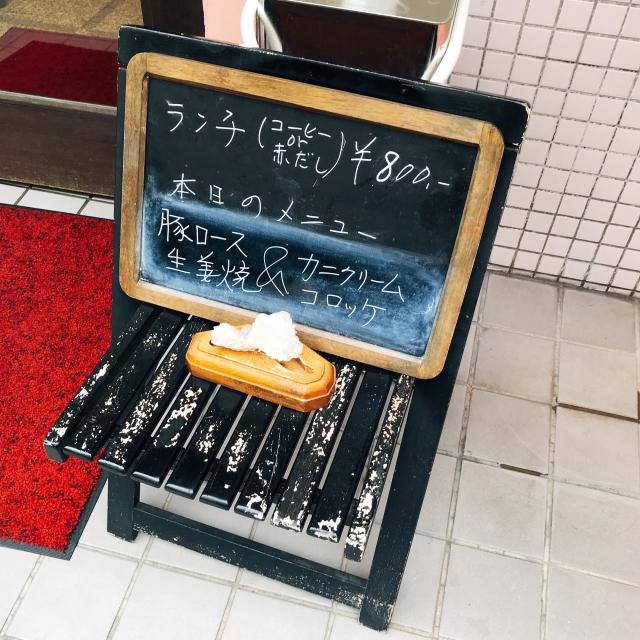 ランチ(コーヒー or 赤だし)¥800.-
本日のメニュー
豚ロース
生姜焼 & カニクリーム
コロッケ